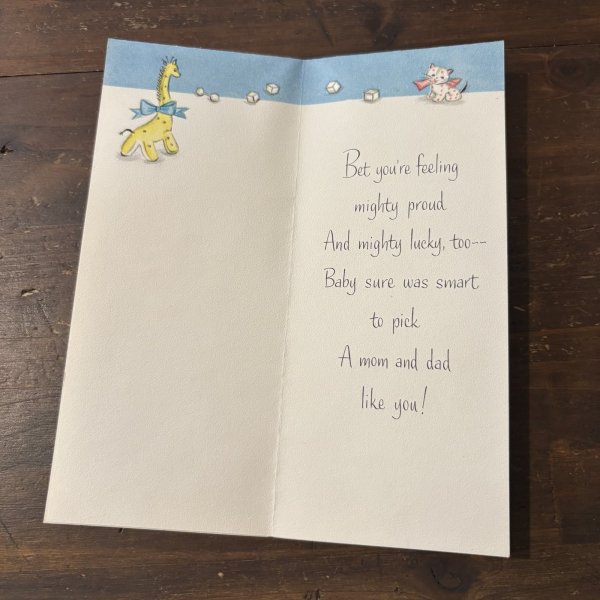 Bet you're feeling
mighty proud
And mighty lucky, too--
Baby sure was smart
to pick
A mom and dad
like you!